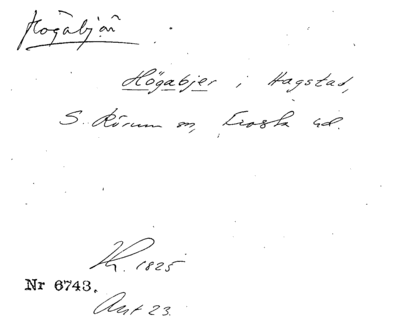 Högabjär
Högabjer i Hagstad,
S. Rörum sn, Frosta hd.
Kr. 1825
Nr 6743.
Avt 23.